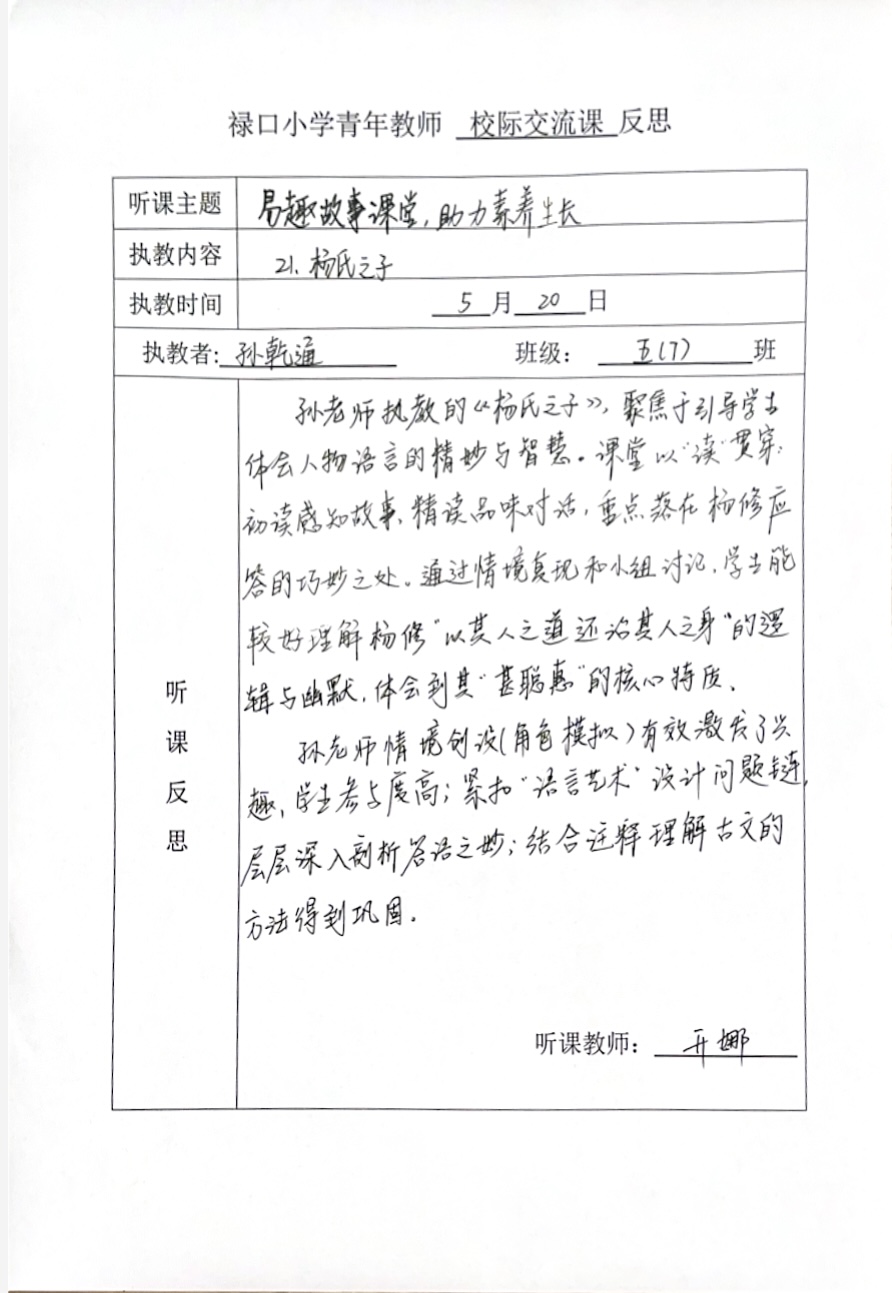 禄口小学青年教师 校际交流课 反思
听课主题 易趣故事课堂，助力素养生长
执教内容 21. 杨氏之子
执教时间 5 月 20 日
执教者: 孙乾通 班级： 五(7) 班
听课反思
孙老师执教的《杨氏之子》，聚焦于引导学生
体会人物语言的精妙与智慧。课堂以“读”贯穿：
初读感知故事、精读品味对话，重点落在杨修应
答的巧妙之处。通过情境复现和小组讨论，学生能
较好理解杨修“以其人之道还治其人之身”的逻
辑与幽默，体会到其“甚聪惠”的核心特质、
孙老师情境创设（角色模拟）有效激发了兴
趣，学生参与度高；紧扣“语言艺术”设计问题链，
层层深入剖析答语之妙；结合注释理解古文的
方法得到巩固。
听课教师： 亓娜